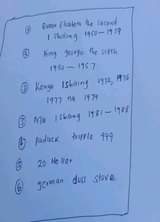 ① Queen Elizabeth the second
1 Shilling 1950 - 1959
② King george the sixth
1950 - 1957
③ Kenya 1Shilling 1980, 1978
1977 na 1974
④ 1 Shilling 1981 - 1988
⑤ padlock tripple 999
⑥ 20 Heller
⑥ german